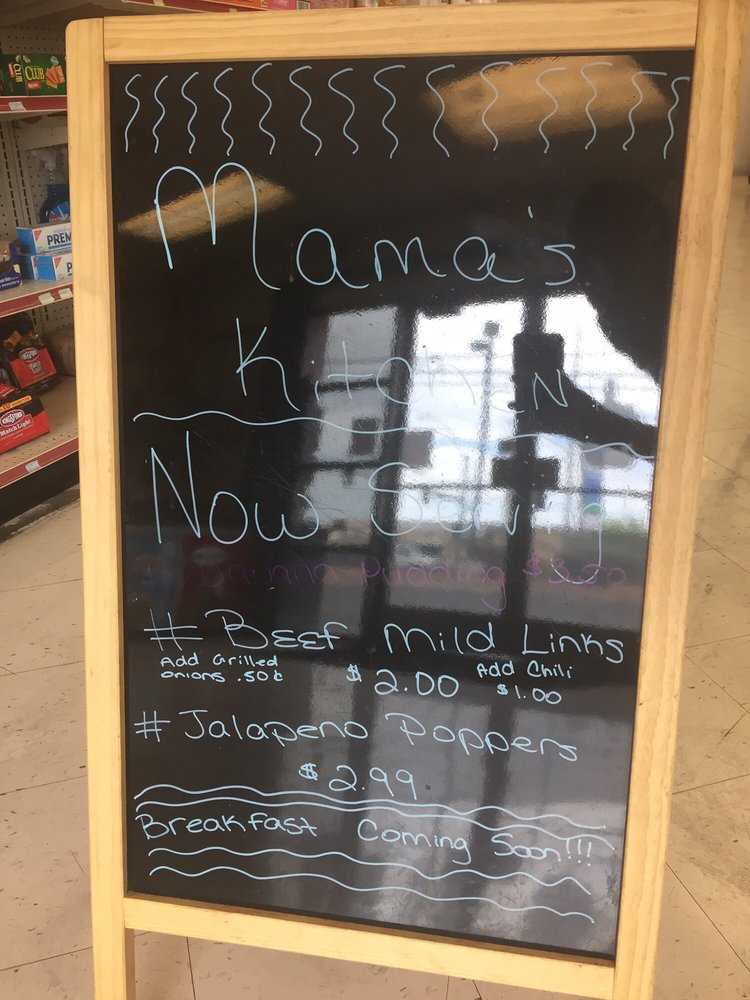 CLUB
PREM
Match Light
Match Light
Mama's
Kitchen
Now Serving
Banana Pudding $3.50
# Beef Mild Links
Add Grilled
onions .50¢
$2.00
Add Chili
$1.00
# Jalapeno Poppers
$2.99
Breakfast Coming Soon!!!